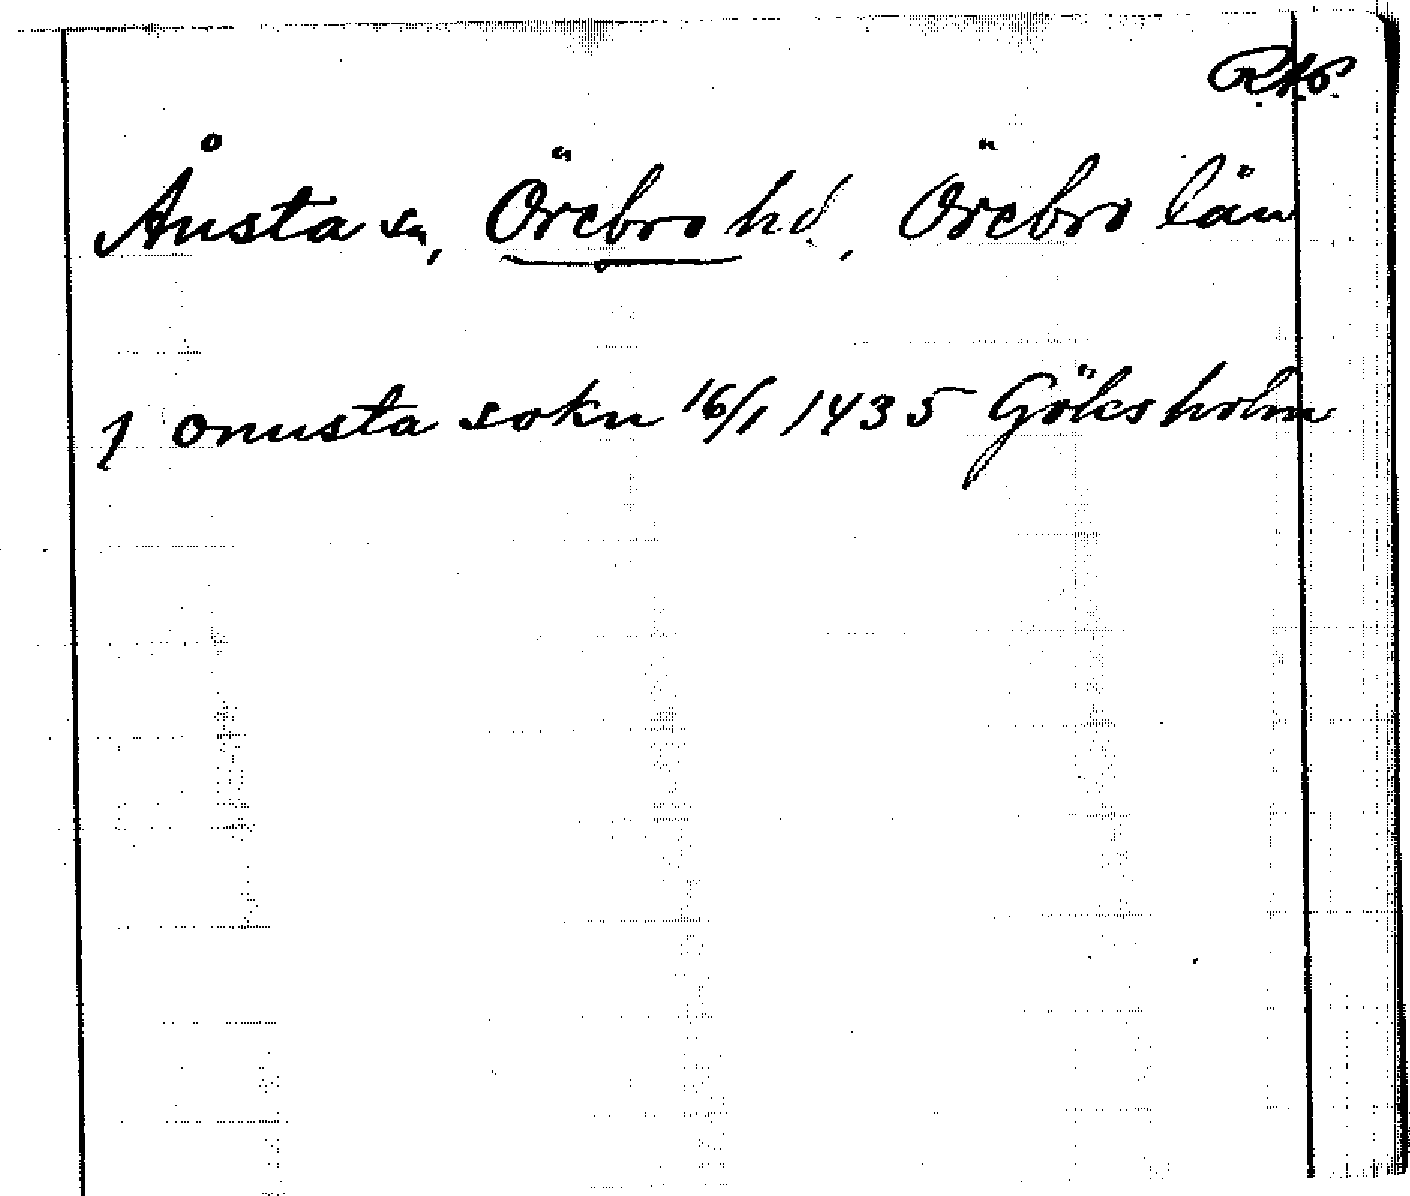 Ånsta sn, Örebro hd, Örebro län
J onusta sokn 16/1 1435 Göksholm